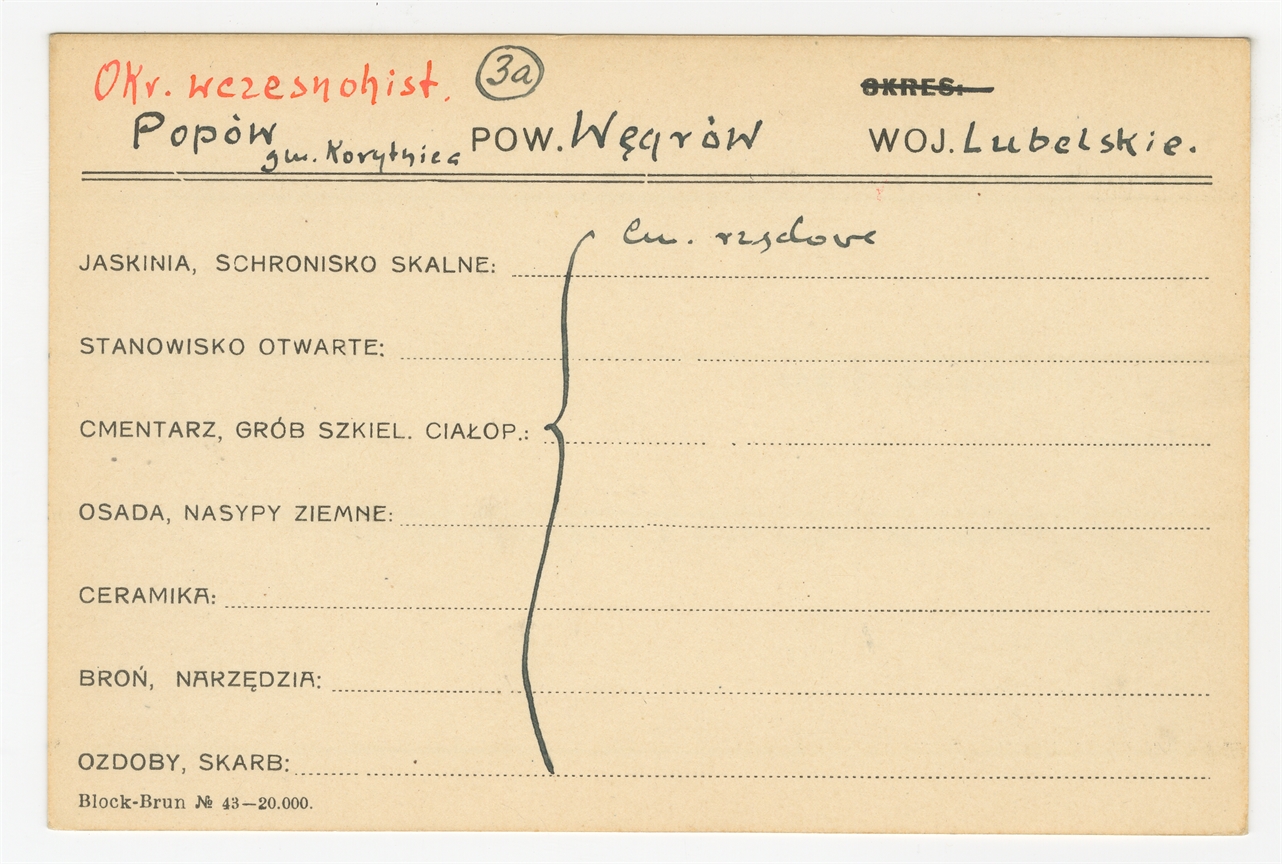 Okr. wczesnohist. 3a OKRES:
Popów gm. Korytnica POW. Węgrów WOJ. Lubelskie.
cm. rzędowe
JASKINIA, SCHRONISKO SKALNE:
STANOWISKO OTWARTE:
CMENTARZ, GRÓB SZKIEL. CIAŁOP.:
OSADA, NASYPY ZIEMNE:
CERAMIKA:
BROŃ, NARZĘDZIA:
OZDOBY, SKARB:
Block-Brun № 43—20.000.